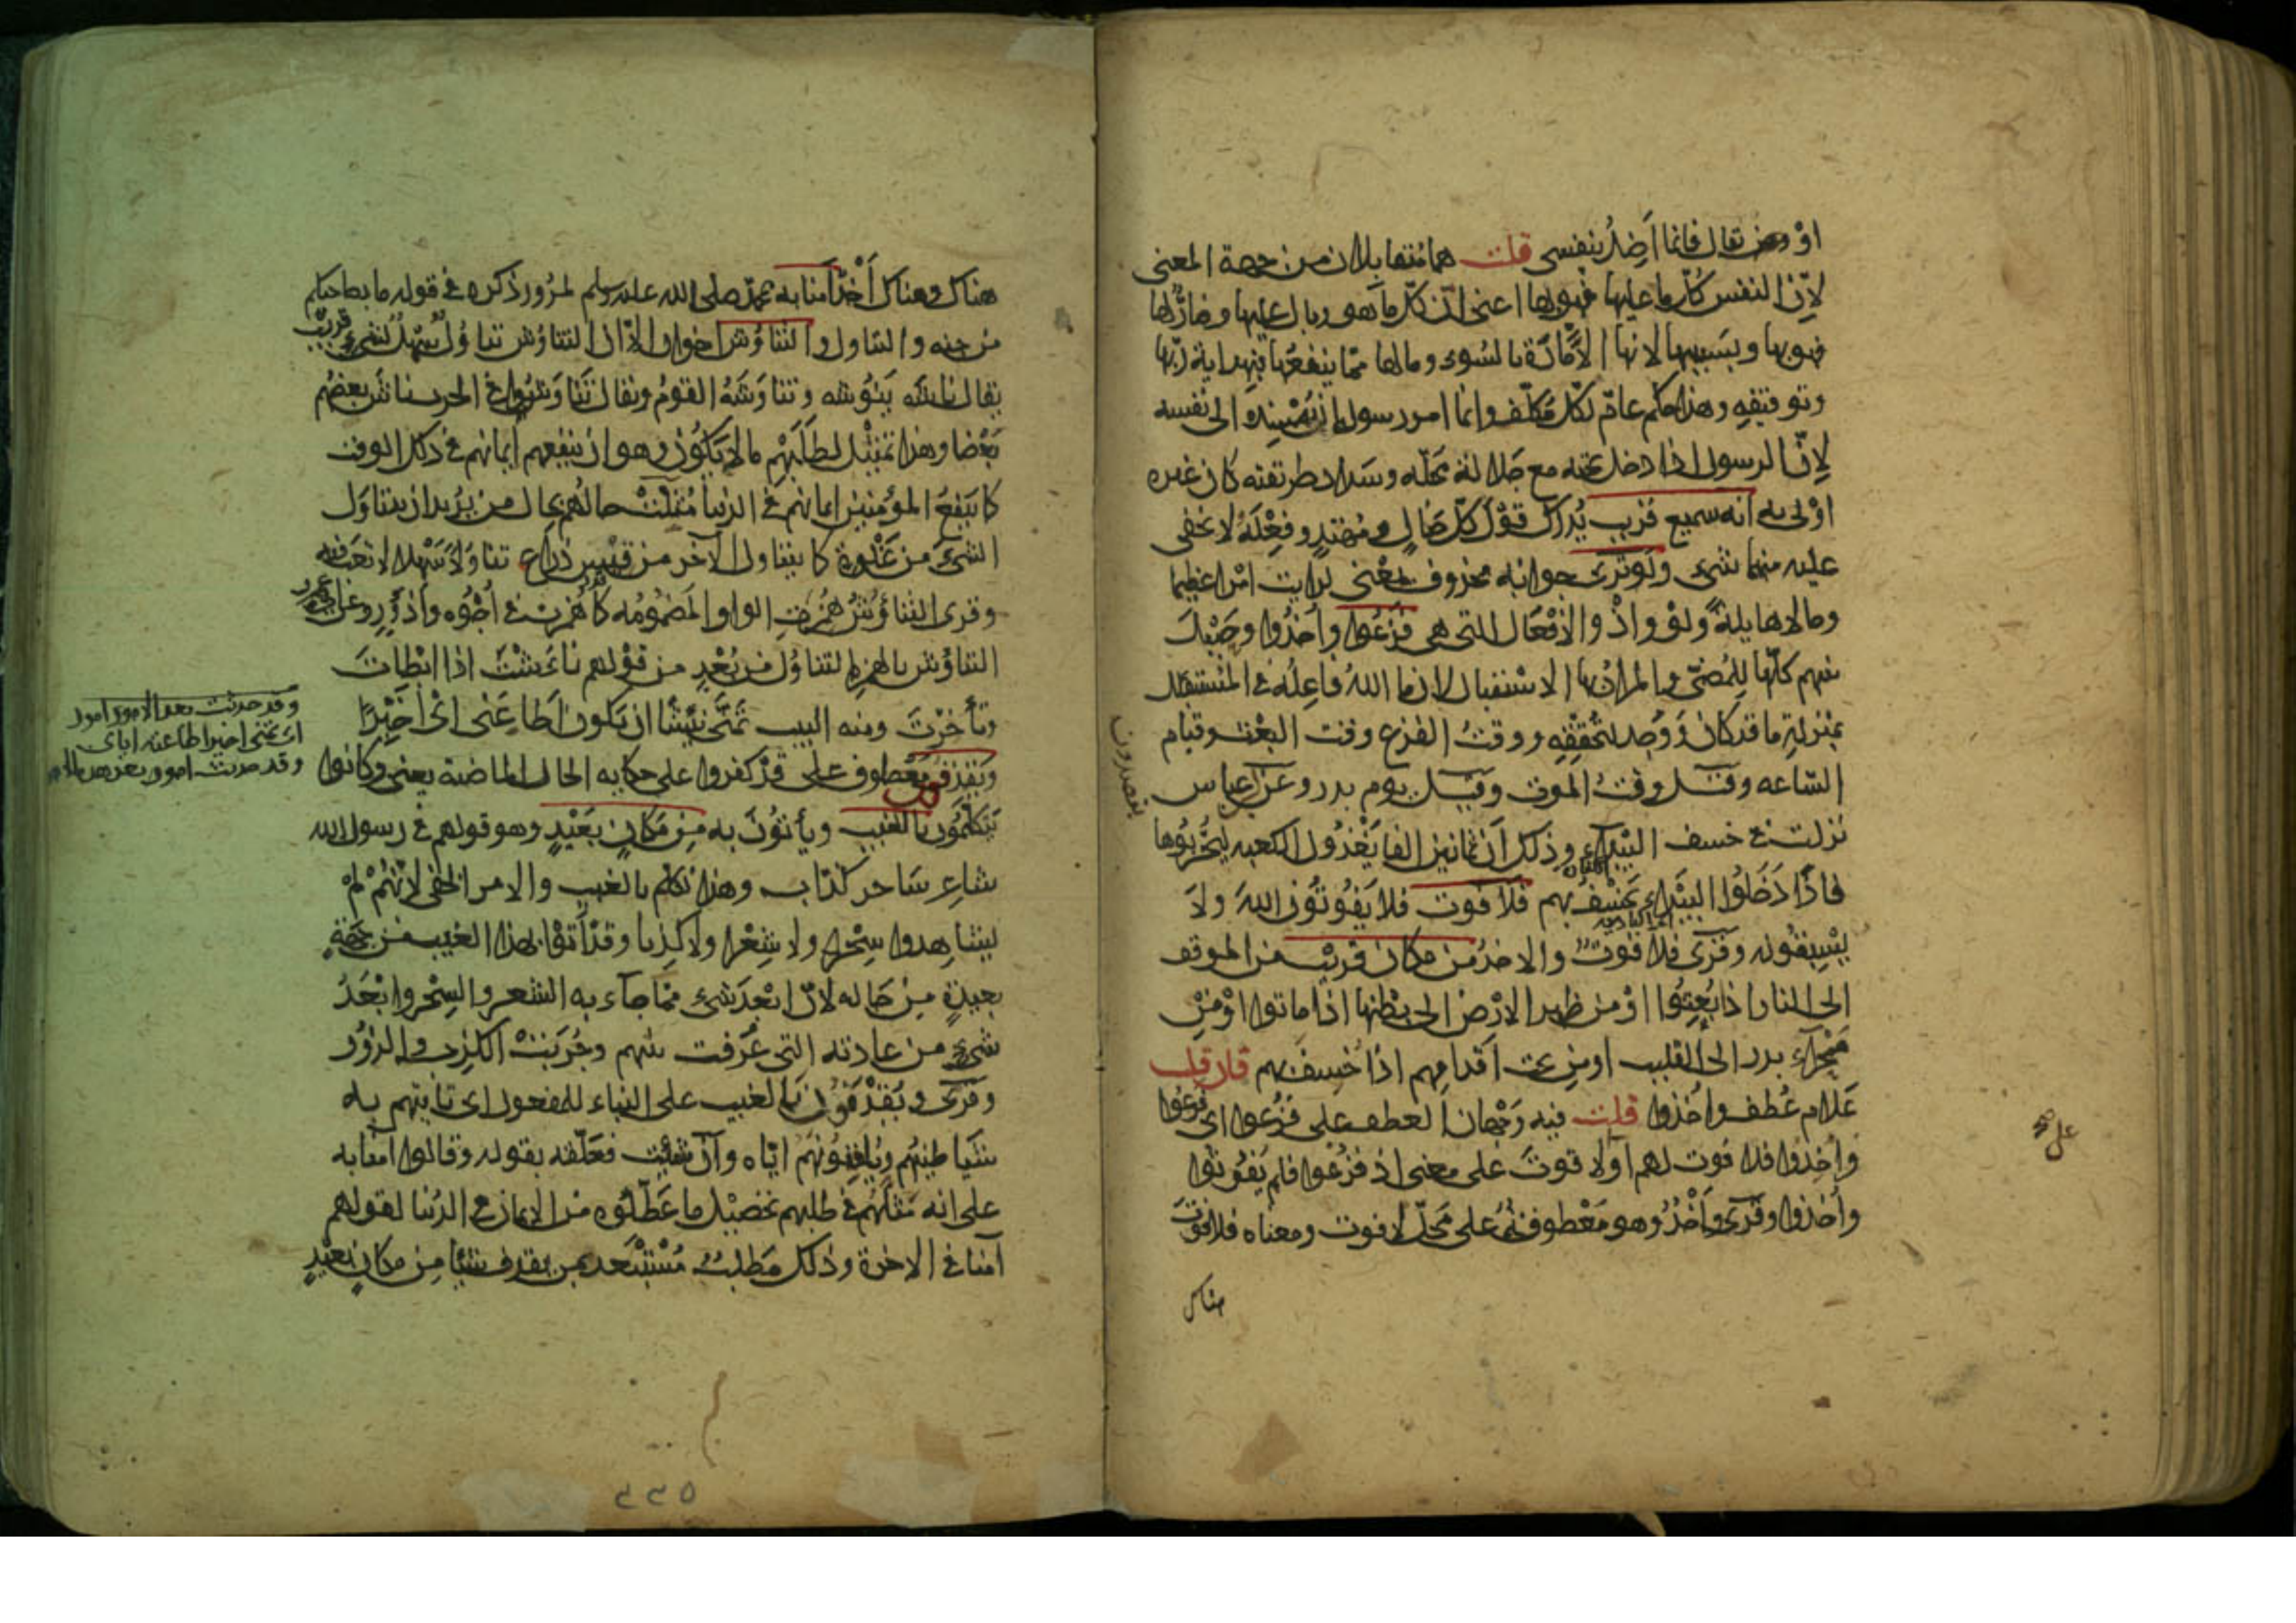 او وحى يقال فانما اَضِلُّ بنفسى قلت هما مُتقابلان من جهة المعنى
لاِنّ النفس كلّ ما عليها فهو بها اعنى ان كلّ ما هو وبال عليها وضارٌّ لها
فهو بها وبسَبَبِها لانها الاَمّارة بالسُوء وما لها مما ينفعُها فبِهداية ربّها
وتوفيقِه وهذا حكم عامّ لكلّ مُكلّف وانما امر رسوله ان يُسْنِده الى نفسه
لاِنّ الرسول اذا دخل تحته مع جَلالة مَحَلّه وسَداد طريقته كان غيره
اوْلى به انه سميع قريب يُدرك قوْلَ كلّ ضالٍ ومُهْتدٍ وفِعْلَهُ لا يخفى
عليه منهما شىء ولَوْ تَرَى جوابه محذوف يعْنى لرايت امْرا عظيما
وحالا هايلةً ولَوْ واِذْ والاَفْعَال التى هى فَزِعُوا واُخِذُوا وحِيْلَ
بينهم كلّها للمُضىّ والمراد بها الاسْتقبال لان ما اللهُ فاعِلُه فى المُسْتقبل
بمَنزلة ما قد كان وَوُجد لتحققِه ووقتُ الفزع وقت البعْث وقيام
السّاعه وقيل وقتُ الموت وقيل يوم بدر وعن ابن عباس
نزلت فى خسف البَيْداء وذلك اَنّ ثمانين الفا يَغْزُون الكعبه ليُخَرّبُوها
فاذَا دَخَلُوا البَيْداء خُسِفَ بهم فلا فَوْت فلا يَفُوتُون اللهَ ولَا
يَسْبِقُونه وقُرِئَ فلا فَوْتٌ والاخذُ من مكان قريْب من الموقف
الى النار اذا بُعِثُوا اوْ من ظهر الاَرْض الى بَطْنها اذا ماتوا اوْ مِنْ
صَحْراء بدر الى القليب او مِن تحت اَقدامِهم اذا خُسِف بهم فان قلت
عَلام عُطف واُخِذوا قلت فيه وَجْهان العطف على فَزِعوا اى فَزِعُوا
واُخِذُوا فلا فَوْت لهم اَوْ لا فوتَ على معنى اذ فزِعُوا فلم يَفُوتُوا
واُخذوا وقُرئ واَخْذٌ وهو مَعْطوف على مَحَلّ لا فوت ومعناه فلا فَوْتَ
هناك
هناك وهناك اَخْذٌ آمَنا به بمحمّد صلى الله عليه وسلم لمرُور ذكره فى قوله ما بصاحبكم
من جنه والتناول والتناوُش اخوان الاّ ان التناوُش تناوُل سَهْل لشىء قريب
يقال ناشَه يَنُوشه وتناوَشَهُ القومُ ويقال تَناوَشُوا فى الحرب ناش بعضُهم
بَعْضا وهذا تمثِيْل لطلَبِهم مالا يَكوُن وهو ان ينفعهم ايمانهم فى ذلك الوقت
كما يَنفَعُ المؤمنين ايمانهم فى الدنيا مُثِّلَتْ حالُهم بحال من يُريد ان يتناوَل
الشىءَ من غَلْوة كما يتناوله الآخر من قِيسِ ذراع تناوُلاً سَهْلا لا تَعَب فيه
وقرئ التناؤُش هُمزت الواو المَضمُومه كما هُمزت فى اَجْؤُه واَدْؤُر وعن ابى عمرو
التناؤُش بالهمز التناوُل من بُعْد من قولهم نأشْتَ اذا ابْطَأتَ
وتأخّرْتَ ومنه البيت تمَنّى نَئِيشًا ان يكون اَطاعَنى اىْ اَخِيْرًا
ويَقْذِفُون مَعْطوف على قَدْ كفروا على حكايه الحال الماضية يعنى وكانوا
يَتكلّمُون بالغَيْب ويأتوُن به مِن مَكانٍ بَعِيْدٍ وهو قولهم فى رسول الله
شاعِر سَاحر كذّاب وهذا تكلّم بالغيب والامر الخفى لاَنّهُمْ لَمْ
يُشاهِدوا منه سِحْرا ولا شِعْرا ولا كذِبا وقد اَتَوْا بهذا الغيب من جهةٍ
بعيدةٍ مِن حَاله لانّ ابْعَدَ شىء ممّا جآء به الشعر والسِحْر واَبْعَدُ
شىءٍ من عادته التى عُرفت بينهم وجُرّبَتْ الكذِب والزوُر
وقرئ ويُقْذَفُون بالغيب على البِناء للمفعول اى تاتيهم به
شَيَاطِينُهم ويُلقِّنُونَهم ايّاه وان شئت فعَلّقه بقوله وقالوا آمنا به
على انه مَثلَهُم فى طلبهم تحْصِيْل ما عَطّلوُه من الايمان فى الدُنيا لقولهم
آمَنا فى الاخرة وذلك مَطلبٌ مُسْتَبْعد بمن يقذف شيئا مِن مكانٍ بَعيْدٍ
وقد حدثت بعد الامور امور
اى تمنى اخيرا اطاعته اياى
وقد حدثت امور بعد هذا الامور
٣٣٥